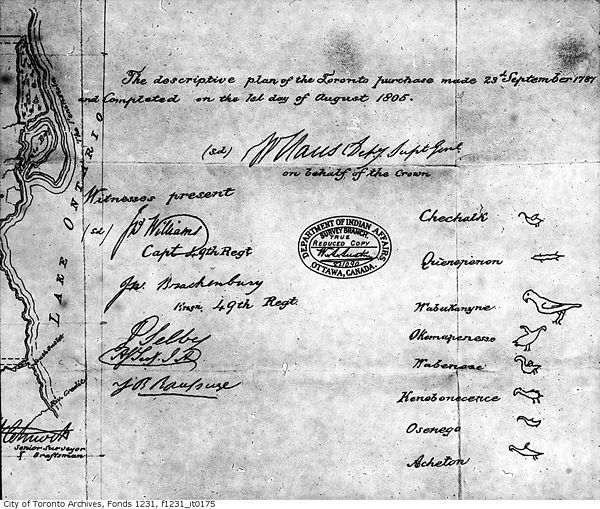 The descriptive plan of the Toronto purchase made 23d September 1787
and Completed on the 1st day of August 1805.
(sd) W Claus Depy Supt Genl
on behalf of the Crown
Witnesses present
(sd) Jno Williams
Capt 49th Regt
Jno Brackenbury
Ensn 49th Regt.
P Selby
J.B. Rousseau
DEPARTMENT OF INDIAN AFFAIRS
SURVEY BRANCH
TRUE
REDUCED COPY
OTTAWA, CANADA.
Chechalk
Quienepenon
Wabukanyne
Okemapenesse
Wabenose
Kenebonecence
Osenego
Acheton
LAKE ONTARIO
Senior Surveyor
& Draftsman
City of Toronto Archives, Fonds 1231, f1231_it0175